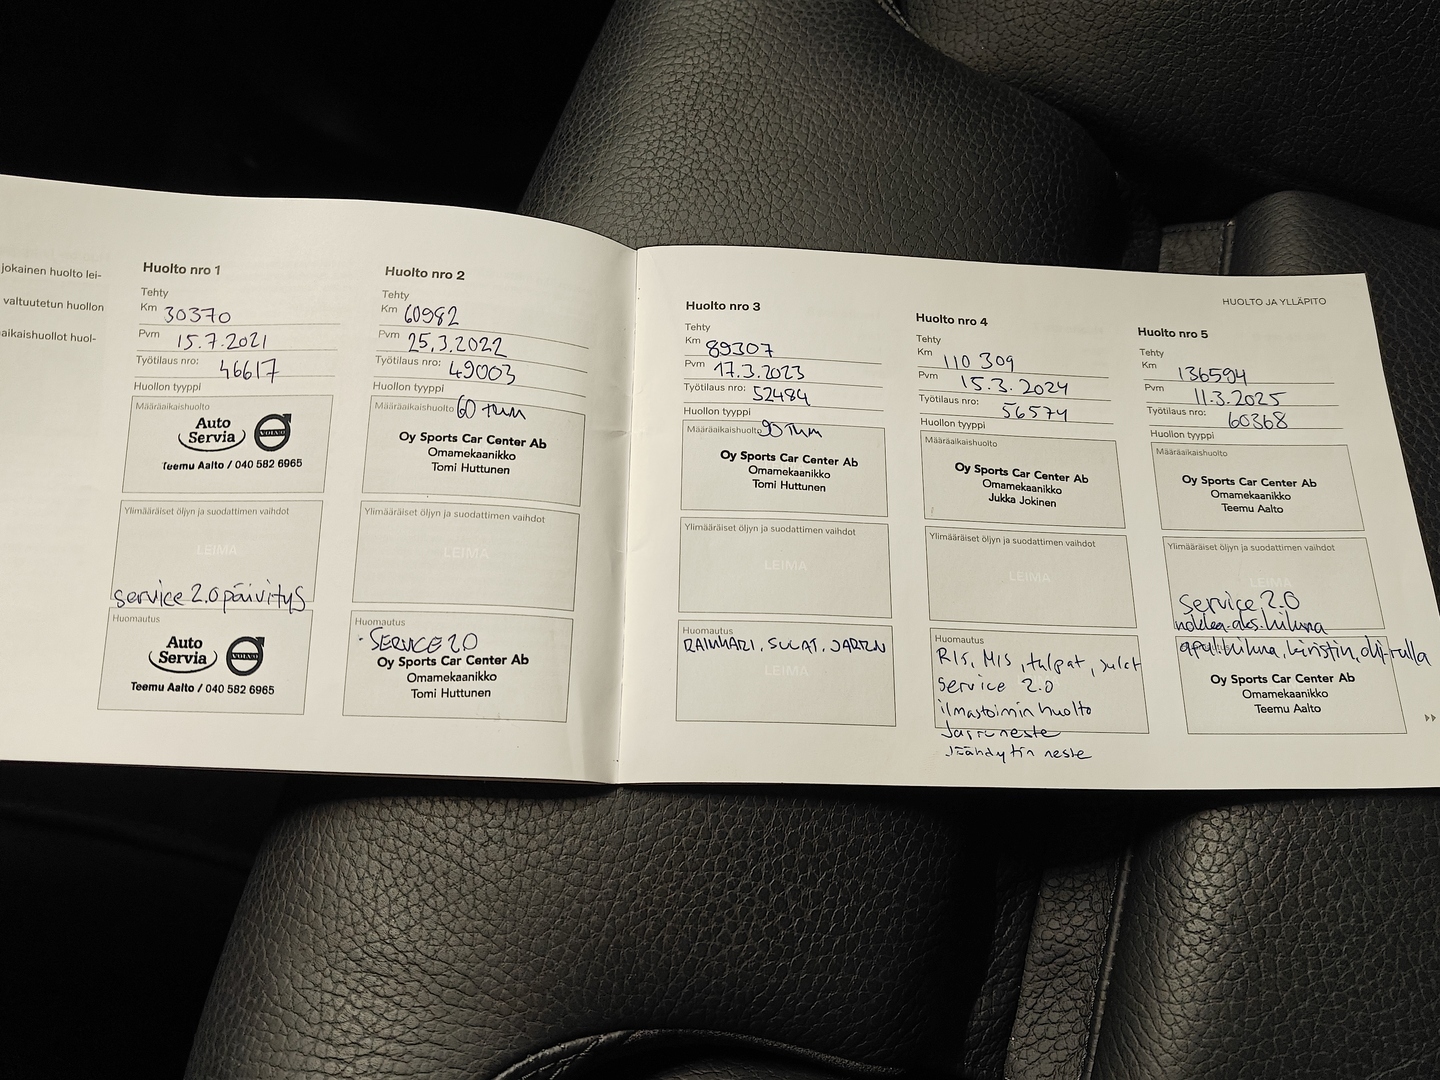 jokainen huolto lei-
valtuutetun huollon
aikaishuollot huol-
Huolto nro 1
Tehty
Km 30370
Pvm 15.7.2021
Työtilaus nro: 46617
Huollon tyyppi
Määräaikaishuolto
Auto
Servia
VOLVO
Teemu Aalto / 040 582 6965
Ylimääräiset öljyn ja suodattimen vaihdot
LEIMA
service 2.0 päivitys
Huomautus
Auto
Servia
VOLVO
Teemu Aalto / 040 582 6965
Huolto nro 2
Tehty
Km 60982
Pvm 25.3.2022
Työtilaus nro: 49003
Huollon tyyppi
Määräaikaishuolto 60 tkm
Oy Sports Car Center Ab
Omamekaanikko
Tomi Huttunen
Ylimääräiset öljyn ja suodattimen vaihdot
LEIMA
Huomautus
- SERVICE 2.0
Oy Sports Car Center Ab
Omamekaanikko
Tomi Huttunen
HUOLTO JA YLLÄPITO
Huolto nro 3
Tehty
Km 89307
Pvm 17.3.2023
Työtilaus nro: 52484
Huollon tyyppi
Määräaikaishuolto 90 tkm
Oy Sports Car Center Ab
Omamekaanikko
Tomi Huttunen
Ylimääräiset öljyn ja suodattimen vaihdot
LEIMA
Huomautus
SULAT, JARRN
LEIMA
Huolto nro 4
Tehty
Km 110 309
Pvm 15.3.2024
Työtilaus nro: 56574
Huollon tyyppi
Määräaikaishuolto
Oy Sports Car Center Ab
Omamekaanikko
Jukka Jokinen
Ylimääräiset öljyn ja suodattimen vaihdot
LEIMA
Huomautus
RIS, MIS, tulpat, sulat
Service 2.0
ilmastoinnin huolto
Jarruneste
Jäähdytin neste
Huolto nro 5
Tehty
Km 136594
Pvm 11.3.2025
Työtilaus nro: 60368
Huollon tyyppi
Määräaikaishuolto
Oy Sports Car Center Ab
Omamekaanikko
Teemu Aalto
Ylimääräiset öljyn ja suodattimen vaihdot
LEIMA
Service 2.0
nokka-aks.hihna
apul.hihna, kiristin, ohj.rulla
Oy Sports Car Center Ab
Omamekaanikko
Teemu Aalto